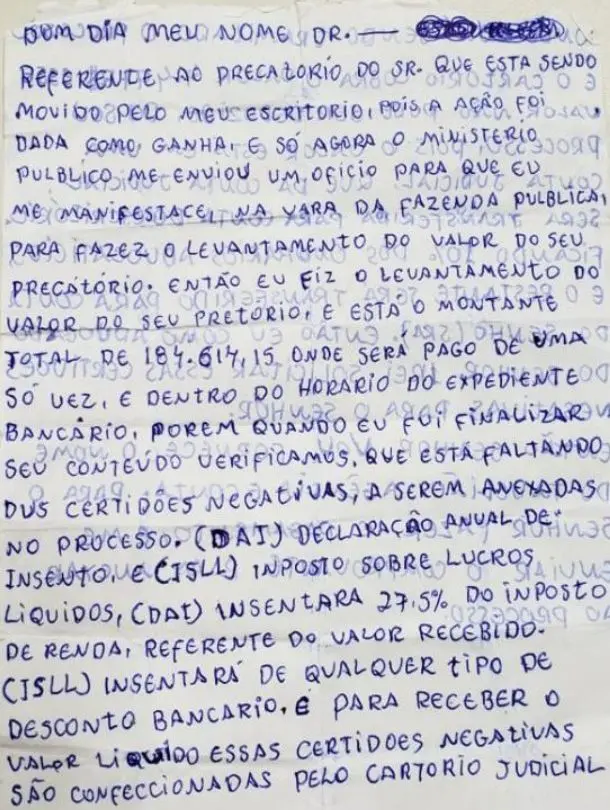 BOM DIA MEU NOME DR. —
REFERENTE AO PRECATORIO DO SR. QUE ESTA SENDO
MOVIDO PELO MEU ESCRITORIO, POIS A AÇÃO FOI
DADA COMO GANHA, E SÓ AGORA O MINISTERIO
PULBLICO ME ENVIOU UM OFICIO PARA QUE EU
ME MANIFESTACE, NA VARA DA FAZENDA PULBLICA,
PARA FAZEZ O LEVANTAMENTO DO VALOR DO SEU
PRECATÓRIO. ENTÃO EU FIZ O LEVANTAMENTO DO
VALOR DO SEU PRETÓRIO, E ESTÁ O MONTANTE
TOTAL DE 184.614,15 ONDE SERÁ PAGO DE UMA
SÓ VEZ, E DENTRO DO HORARIO DO EXPEDIENTE
BANCÁRIO, POREM QUANDO EU FUI FINALIZAR
SEU CONTEVDO VERIFICAMOS, QUE ESTÁ FALTANDO
DUS CERTIDÕES NEGATIVAS, A SEREM ANEXADAS
NO PROCESSO. (DAI) DECLARAÇÃO ANUAL DE
INSENTO, E (ISLL) INPOSTO SOBRE LUCROS
LIQUIDOS, (DAI) INSENTARA 27,5% DO INPOSTO
DE RENDA, REFERENTE DO VALOR RECEBIDO.
(ISLL) INSENTARÁ DE QUALQUER TIPO DE
DESCONTO BANCARIO, E PARA RECEBER O
VALOR LIQUIDO ESSAS CERTIDOES NEGATIVAS
SÃO CONFECCIONADAS PELO CARTORIO JUDICIAL